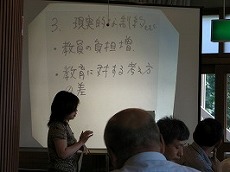 3. 現実的な
・教員の負担増
・教育に対する考え方
の差